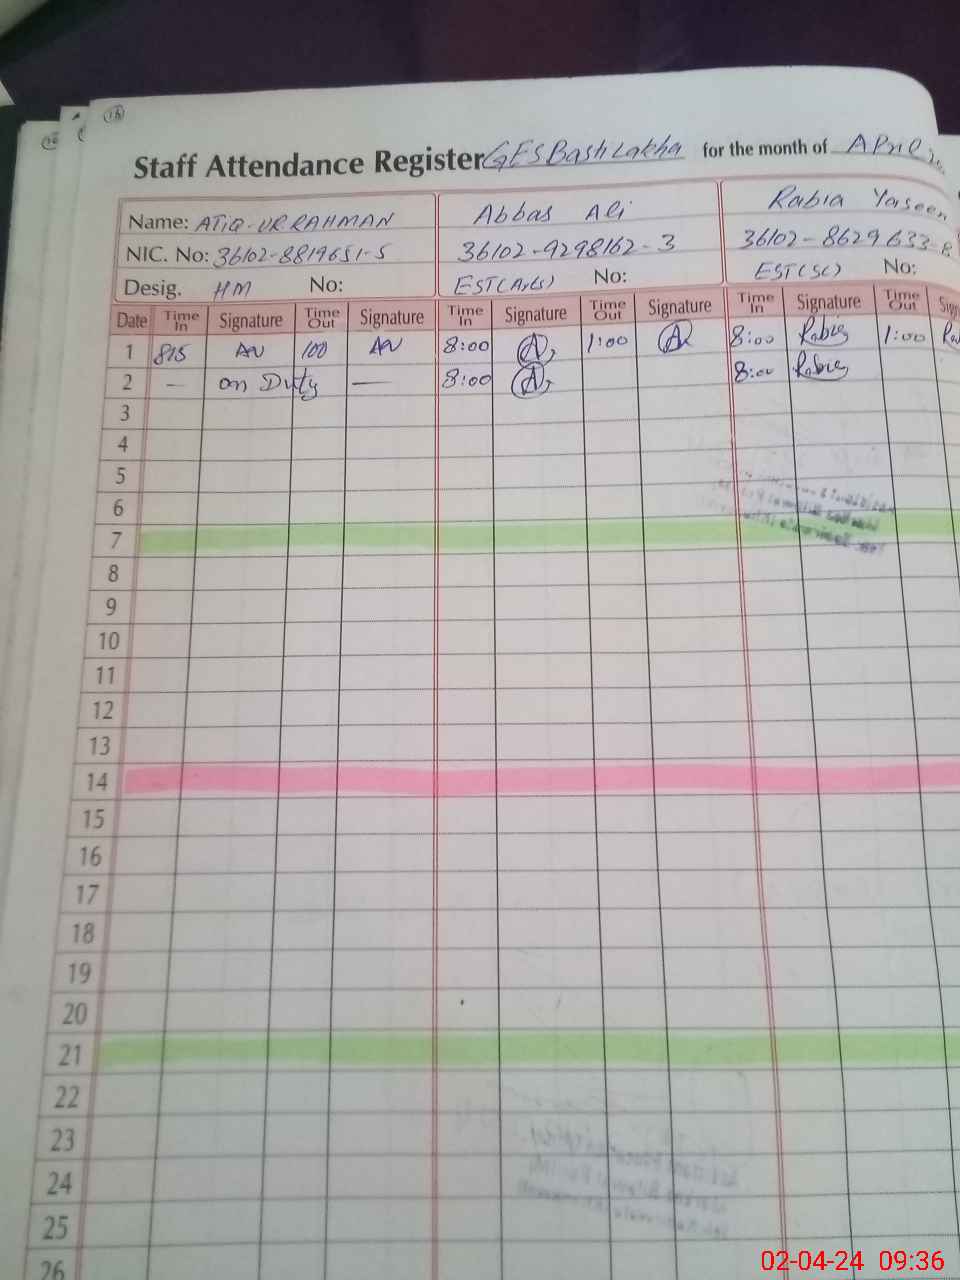 18
Staff Attendance Register GES Bash Lakha for the month of APril
Name: ATIQ-UR.RAHMAN Abbas Ali Rabia Yaseen
NIC. No: 36102-8819651-5 36102-9298162-3 36102-8629633-8
Desig. HM No: EST(Arts) No: EST(SC) No:
Date Time In Signature Time Out Signature Time In Signature Time Out Signature Time In Signature Time Out Sig
1 815 100 8:00 A 1:00 A 8:00 Rabia 1:00 Ra
2 — on Duty — 8:00 A 8:00 Rabia
3
4
5
6
7
8
9
10
11
12
13
14
15
16
17
18
19
20
21
22
23
24
25
26
02-04-24 09:36